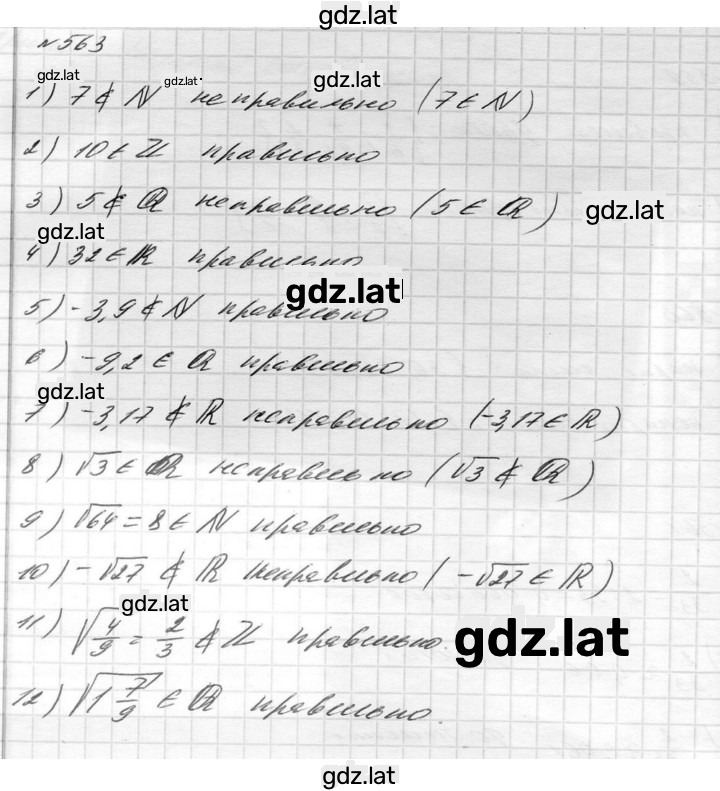 gdz.lat
№563
gdz.lat gdz.lat gdz.lat
1) 7 ∉ N неправильно (7 ∈ N)
2) 10 ∈ Z правильно
3) 5 ∉ Q неправильно (5 ∈ Q)
gdz.lat
gdz.lat
4) 32 ∈ R правильно
gdz.lat
5) -3,9 ∉ N правильно
6) -9,2 ∈ Q правильно
gdz.lat
7) -3,17 ∉ R неправильно (-3,17 ∈ R)
8) √3 ∈ Q неправильно (√3 ∉ Q)
9) √64 = 8 ∈ N правильно
10) -√27 ∉ R неправильно (-√27 ∈ R)
gdz.lat
11) √(4/9) = 2/3 ∉ Z правильно.
gdz.lat
12) √(1 7/9) ∈ Q правильно.
gdz.lat